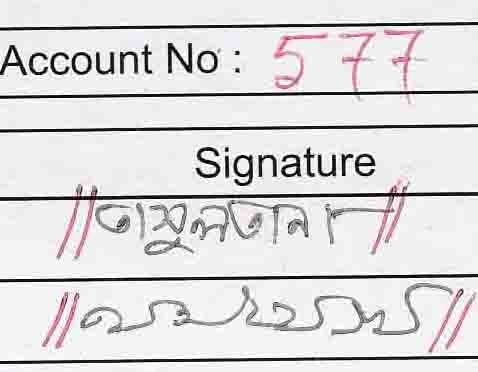 Account No : 577
Signature
তাসুলতানা